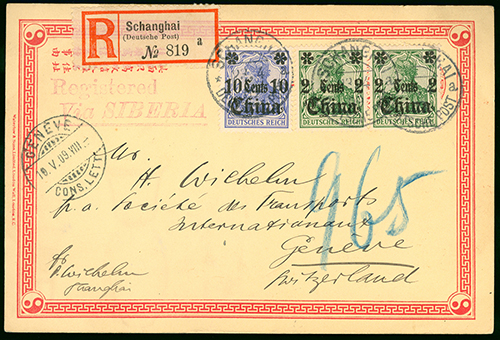 R
Schanghai
(Deutsche Post)
№ 819 a
Registered
Via SIBERIA
10 Cents 10
China
DEUTSCHES REICH
2 Cents 2
China
DEUTSCHES REICH
2 Cents 2
China
DEUTSCHES REICH
GENÈVE
18.V.09.VIII
CONS. LETT.
Mr.
H. Wilhelm
p.a. Societé des Transports
Internationaux
Genève
Switzerland
965
H. Wilhelm
Shanghai